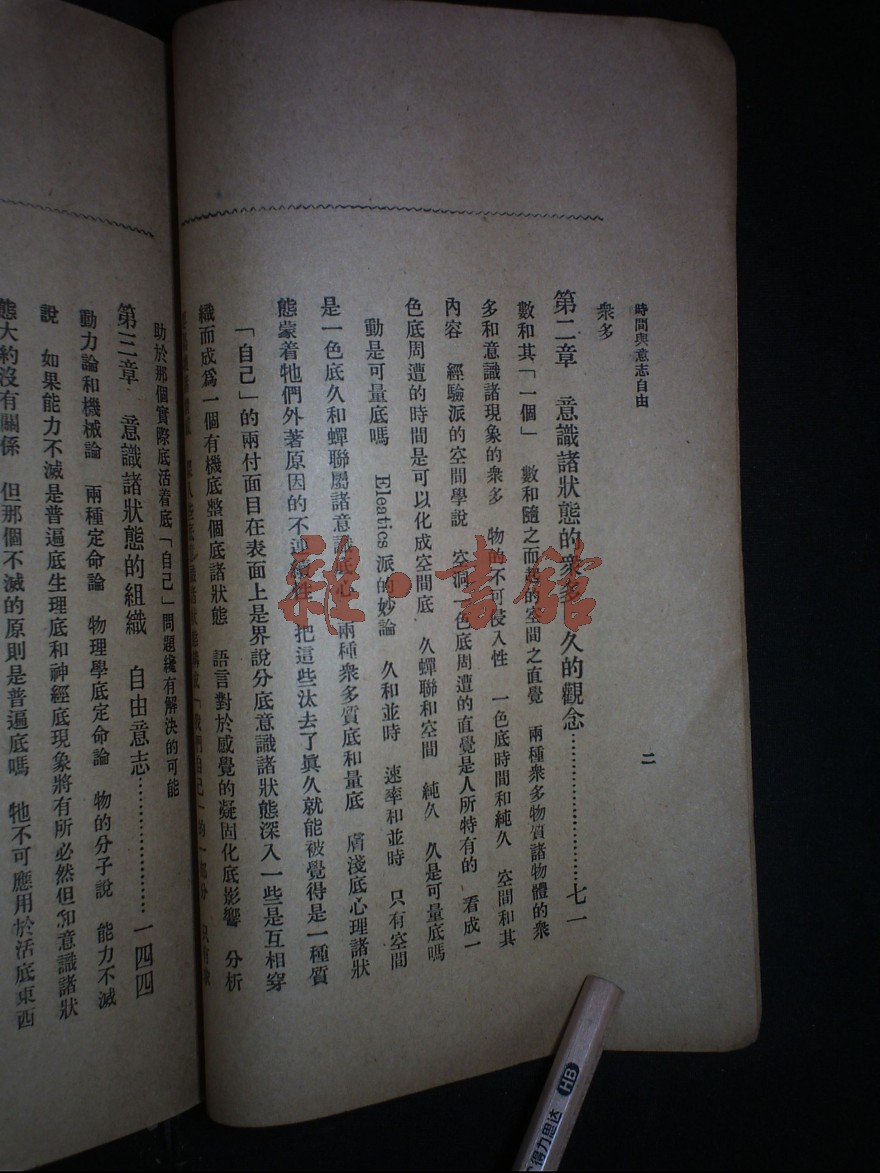 時間與意志自由
二
衆多
第二章 意識諸狀態的衆多 久的觀念……………………七一
數和其「一個」 數和隨之而起的空間之直覺 兩種衆多物質諸物體的衆
多和意識諸現象的衆多 物的不可侵入性 一色底時間和純久 空間和其
內容 經驗派的空間學說 空洞一色底周遭的直覺是人所特有的 看成一
色底周遭的時間是可以化成空間底 久蟬聯和空間 純久 久是可量底嗎
動是可量底嗎 Eleatics 派的妙論 久和並時 速率和並時 只有空間
是一色底久和蟬聯屬諸意識底心 兩種衆多質底和量底 膚淺底心理諸狀
態蒙着牠們外著原因的不連續性 把這些汰去了眞久就能被覺得是一種質
「自己」的兩付面目在表面上是界說分底意識諸狀態深入一些是互相穿
織而成爲一個有機底整個底諸狀態 語言對於感覺的凝固化底影響 分析
「我們自己」的一部份
助於那個實際底活着底「自己」問題纔有解決的可能
第三章 意識諸狀態的組織 自由意志…………………一四四
動力論和機械論 兩種定命論 物理學底定命論 物的分子說 能力不滅
說 如果能力不滅是普遍底生理底和神經底現象將有所必然但如意識諸狀
態大約沒有關係 但那個不滅的原則是普遍底嗎 牠不可應用於活底東西
雜·書館
得力思达 HB